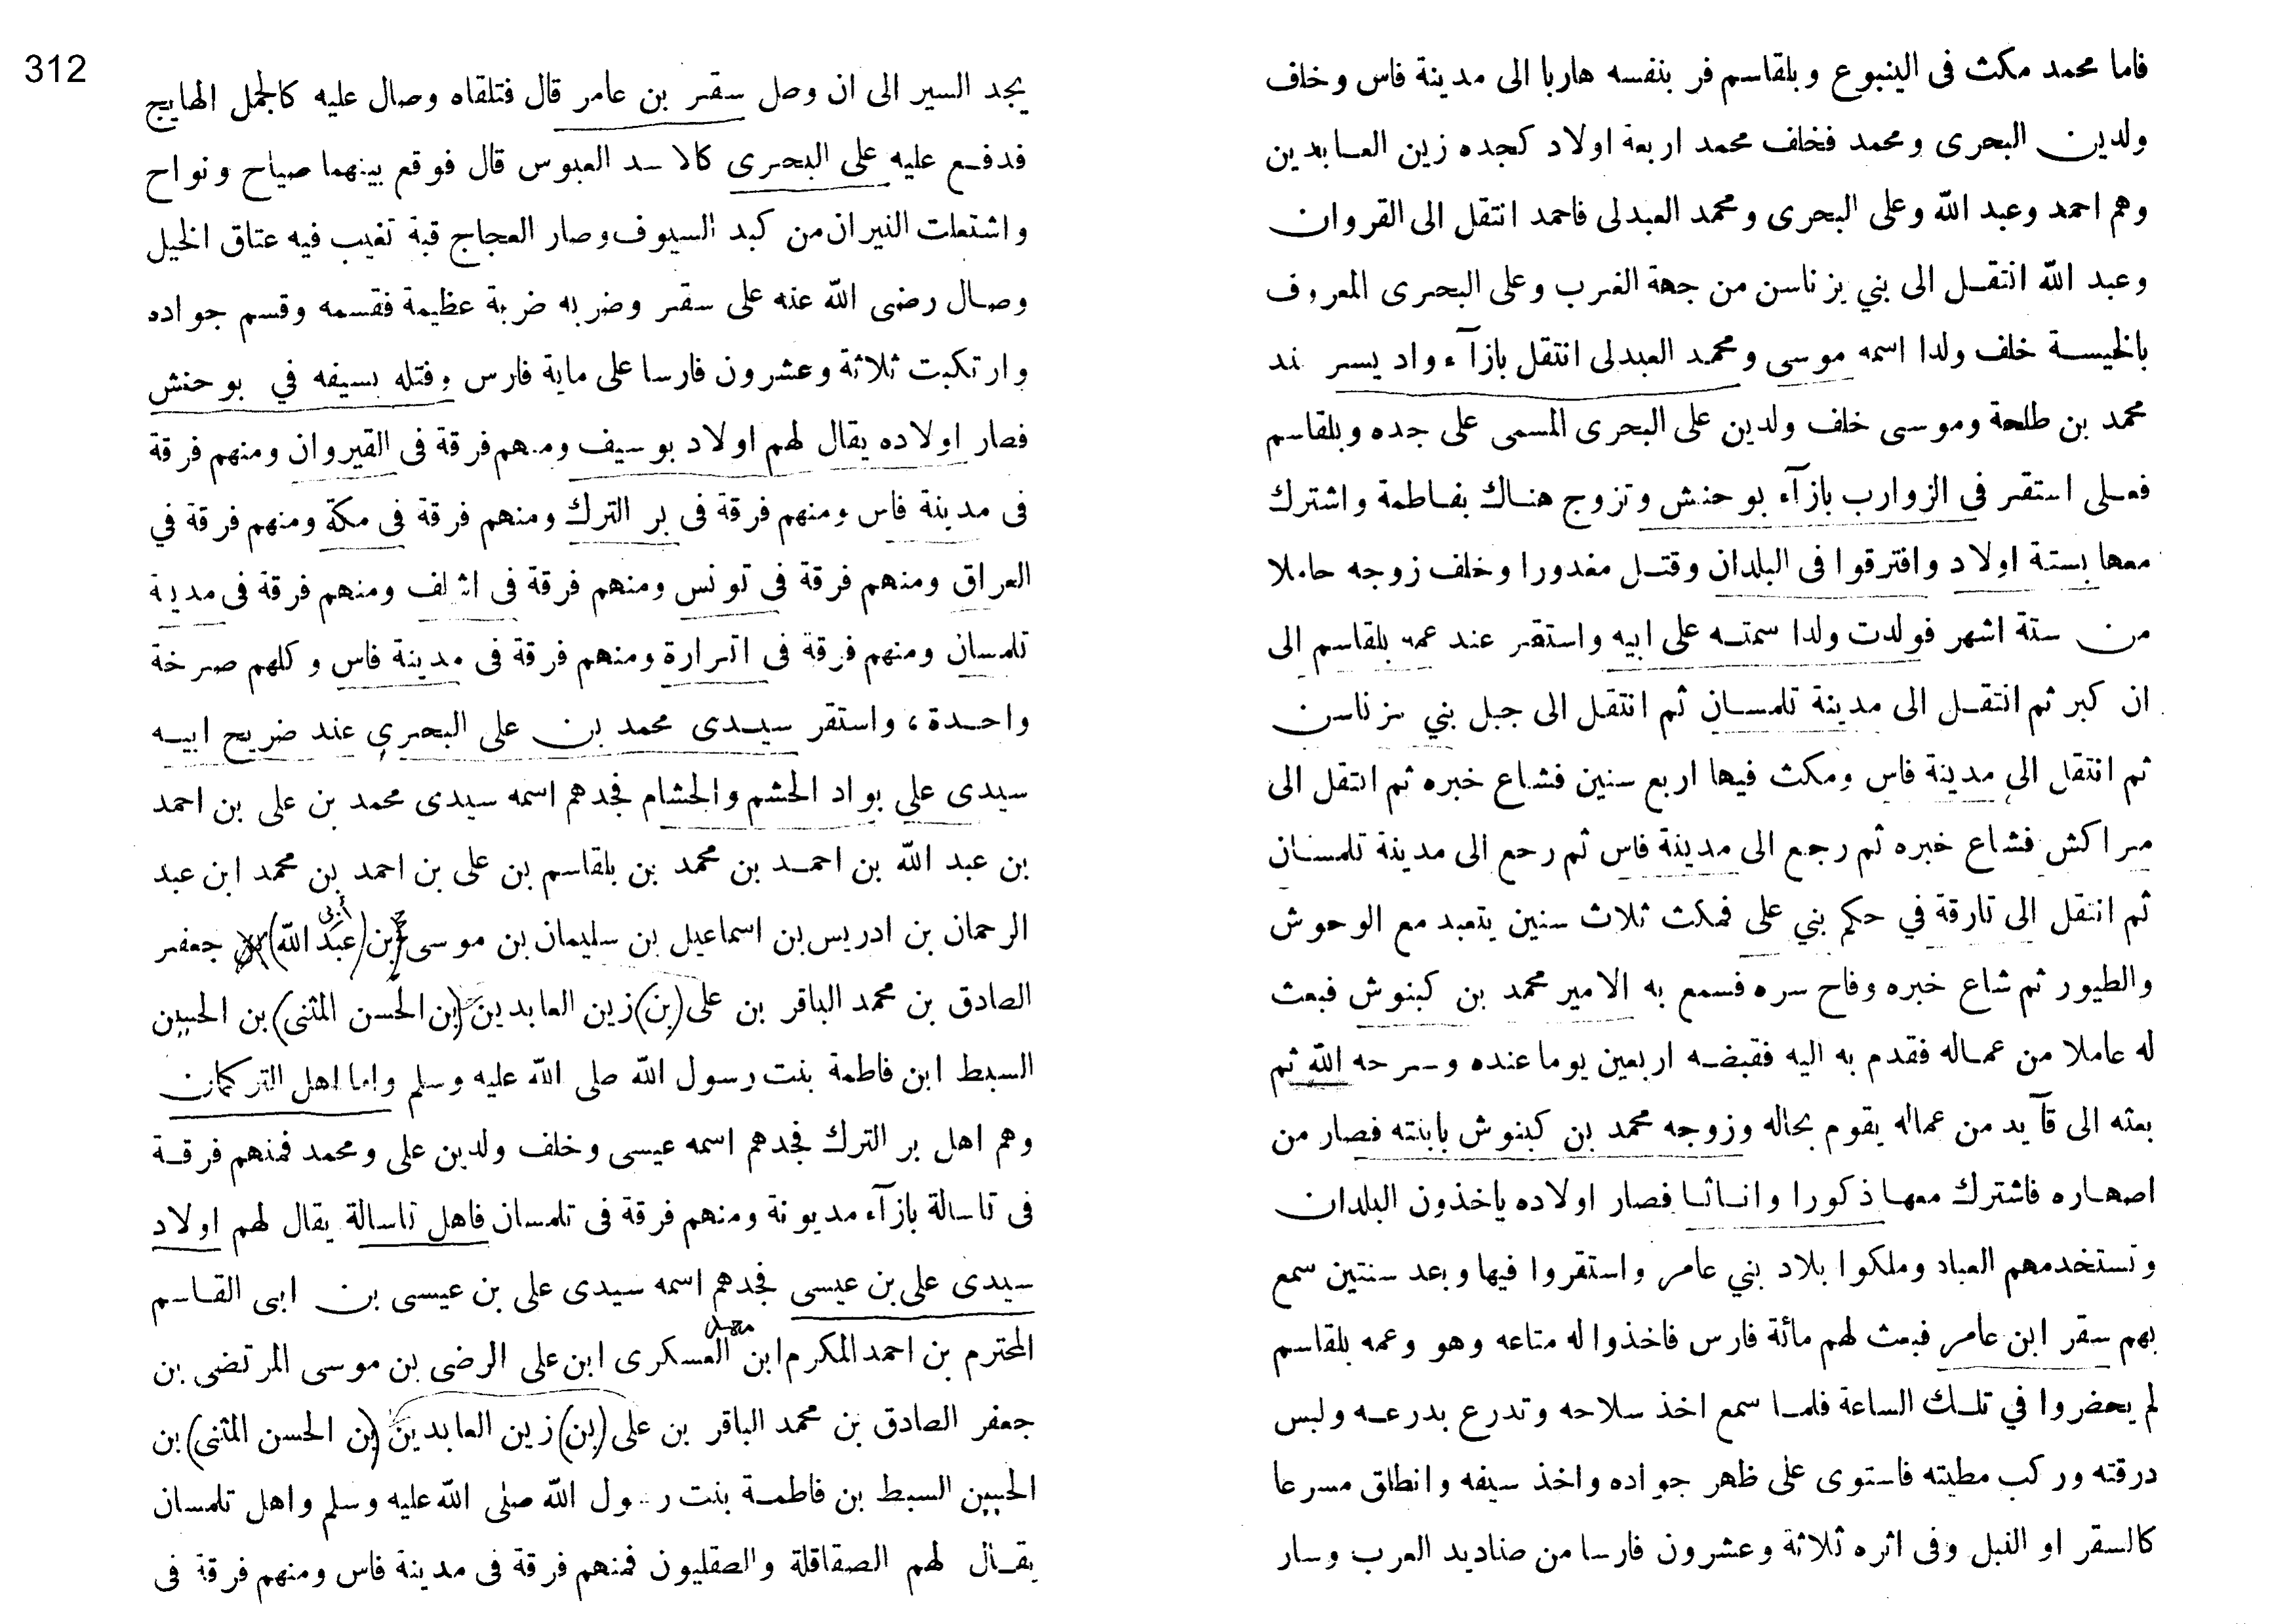 فاما محمد مكث فى الينبوع وبلقاسم فر بنفسه هاربا الى مدينة فاس وخلف
ولدين البحرى ومحمد فخلف محمد اربعة اولاد كجده زين العابدين
وهم احمد وعبد الله وعلى البحرى ومحمد العبدلى فاحمد انتقل الى القروان
وعبد الله انتقل الى بني يزناسن من جهة الغرب وعلى البحرى المعروف
بالخيسة خلف ولدا اسمه موسى ومحمد العبدلى انتقل بازآء واد يسر ند
محمد بن طلحة وموسى خلف ولدين على البحرى المسمى على جده وبلقاسم
فعلى استقر فى الزوارب بازآء بوحنش وتزوج هناك بفاطمة واشترك
معها بستة اولاد وافترقوا فى البلدان وقتل مغدورا وخلف زوجه حاملا
من ستة اشهر فولدت ولدا سمته على ابيه واستقر عند عمه بلقاسم الى
ان كبر ثم انتقل الى مدينة تلمسان ثم انتقل الى جبل بني يزناسن
ثم انتقل الى مدينة فاس ومكث فيها اربع سنين فشاع خبره ثم انتقل الى
مراكش فشاع خبره ثم رجع الى مدينة فاس ثم رجع الى مدينة تلمسان
ثم انتقل الى تارقة في حكم بني على فمكث ثلاث سنين يتعبد مع الوحوش
والطيور ثم شاع خبره وفاح سره فسمع به الامير محمد بن كبنوش فبعث
له عاملا من عماله فقدم به اليه فقبضه اربعين يوما عنده وسرحه الله ثم
بعثه الى قآيد من عماله يقوم بحاله وزوجه محمد بن كبنوش بابنته فصار من
اصهاره فاشترك معها ذكورا واناثا فصار اولاده ياخذون البلدان
وتستخدمهم العباد وملكوا بلاد بني عامر واستقروا فيها وبعد سنتين سمع
بهم سقر ابن عامر فبعث لهم مائة فارس فاخذوا له متاعه وهو وعمه بلقاسم
لم يحضروا في تلك الساعة فلما سمع اخذ سلاحه وتدرع بدرعه ولبس
درقته وركب مطيته فاستوى على ظهر جواده واخذ سيفه وانطلق مسرعا
كالسقر او النبل وفى اثره ثلاثة وعشرون فارسا من صناديد العرب وسار
312
يجد السير الى ان وصل سقر بن عامر قال فتلقاه وصال عليه كالجمل الهايج
فدفع عليه على البحرى كالاسد العبوس قال فوقع بينهما صياح ونواح
واشتعلت النيران من كبد السيوف وصار العجاج قبة تغيب فيه عتاق الخيل
وصال رضى الله عنه على سقر وضربه ضربة عظيمة فقسمه وقسم جواده
وارتكبت ثلاثة وعشرون فارسا على ماية فارس وقتله بسيفه في بوحنش
فصار اولاده يقال لهم اولاد بوسيف ومنهم فرقة فى القيروان ومنهم فرقة
فى مدينة فاس ومنهم فرقة فى بر الترك ومنهم فرقة فى مكة ومنهم فرقة في
العراق ومنهم فرقة فى تونس ومنهم فرقة فى اشلف ومنهم فرقة فى مدينة
تلمسان ومنهم فرقة فى اترارة ومنهم فرقة فى مدينة فاس وكلهم صرخة
واحدة، واستقر سيدى محمد بن على البحرى عند ضريح ابيه
سيدى على بواد الحشم والحشام فجدهم اسمه سيدى محمد بن على بن احمد
بن عبد الله بن احمد بن محمد بن بلقاسم بن على بن احمد بن محمد ابن عبد
الرحمان بن ادريس بن اسماعيل بن سليمان بن موسى بن (عبد الله) أبى جعفر
الصادق بن محمد الباقر بن على (بن) زين العابدين (بن الحسن المثنى) بن الحسين
السبط ابن فاطمة بنت رسول الله صلى الله عليه وسلم واما اهل التركمان
وهم اهل بر الترك فجدهم اسمه عيسى وخلف ولدين على ومحمد فمنهم فرقة
فى تاسالة بازآء مديونة ومنهم فرقة فى تلمسان فاهل تاسالة يقال لهم اولاد
سيدى على بن عيسى فجدهم اسمه سيدى على بن عيسى بن ابى القاسم
المحترم بن احمد المكرم ابن محمد العسكرى ابن على الرضى بن موسى المرتضى بن
جعفر الصادق بن محمد الباقر بن على (بن) زين العابدين (بن الحسن المثنى) بن
الحسين السبط بن فاطمة بنت رسول الله صلى الله عليه وسلم واهل تلمسان
يقال لهم الصقاقلة والصقليون فمنهم فرقة فى مدينة فاس ومنهم فرقة فى